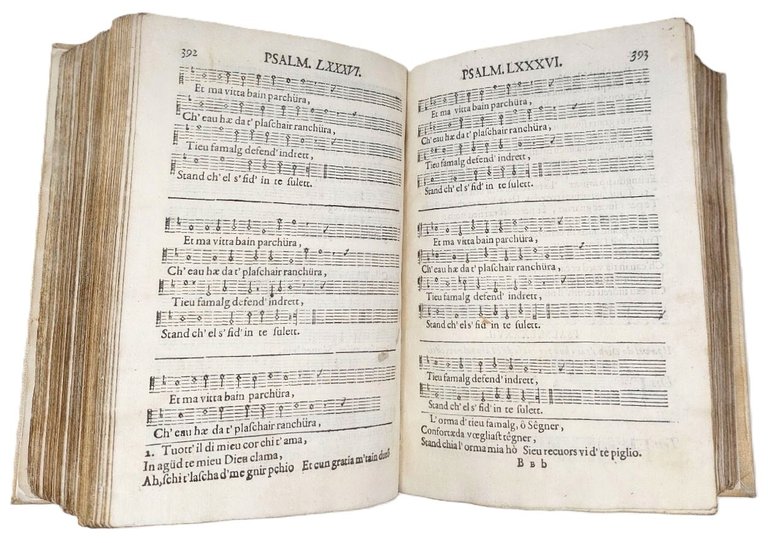 392
PSALM. LXXXVI.
Et ma vitta bain parchüra,
Ch' eau hæ da t' plaſchair ranchüra,
Tieu famalg defend' indrett,
Stand ch' el s' fid' in te ſulett.
Et ma vitta bain parchüra,
Ch' eau hæ da t' plaſchair ranchüra,
Tieu famalg defend' indrett,
Stand ch' el s' fid' in te ſulett.
Et ma vitta bain parchüra,
Ch' eau hæ da t' plaſchair ranchüra,
2. Tuott' il di mieu cor chi t' ama,
In agüd te mieu Dieu clama,
Ah, ſchi t' laſcha d' me gnir pchio Et cun gratia m' tain
PSALM. LXXXVI.
393
Et ma vitta bain parchüra,
Ch' eau hæ da t' plaſchair ranchüra,
Tieu famalg defend' indrett,
Stand ch' el s' fid' in te ſulett.
Et ma vitta bain parchüra,
Ch' eau hæ da t' plaſchair ranchüra,
Tieu famalg defend' indrett,
Stand ch' el s' fid' in te ſulett.
Tieu famalg defend' indrett,
Stand ch' el s' fid' in te ſulett.
L' orma d' tieu famalg, ô Sêgner,
Confortæda vœgliaſt têgner,
Stand chia l' orma mia hò Sieu recuors vi d' te piglio.
B b b